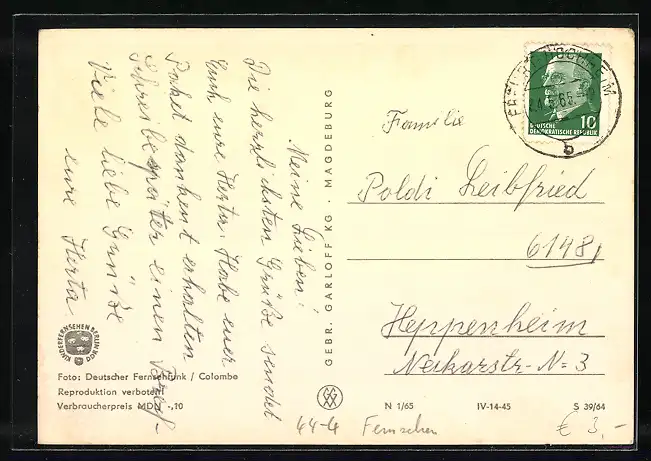 Meine Lieben!
Die herzlichsten Grüße sendet
Euch eure Herta. Habe euer
Paket dankend erhalten
Schreibe später einen Brief.
Viele liebe Grüße
eure Herta
KINDERFERNSEHEN BERLIN
DDR
Foto: Deutscher Fernsehfunk / Colombe
Reproduktion verboten
Verbraucherpreis MDN -,10
GEBR. GARLOFF KG · MAGDEBURG
DEUTSCHE
DEMOKRATISCHE REPUBLIK
10
b
Familie
Poldi Leibfried
6148,
Heppenheim
Neckarstr. N= 3
N 1/65 IV-14-45 S 39/64
44-4 Fernsehen € 3,-